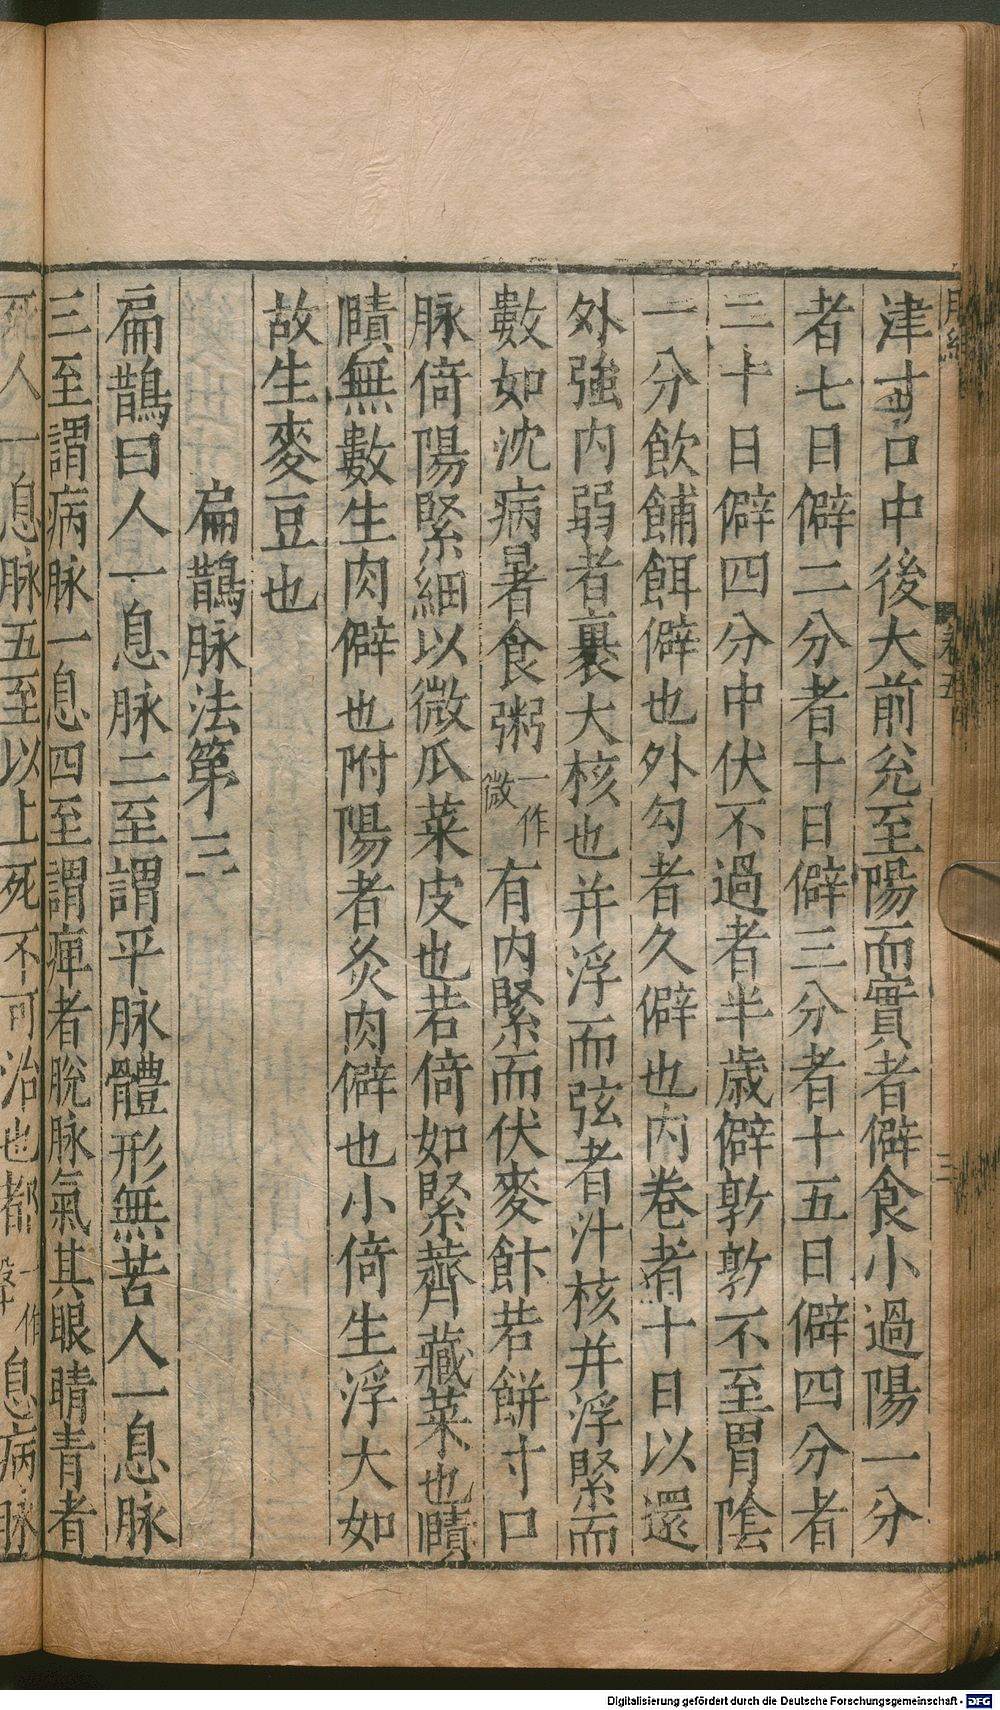 津寸口中後大前兊至陽而實者僻食小過陽一分
者七日僻二分者十日僻三分者十五日僻四分者
二十日僻四分中伏不過者半歲僻敦敦不至胃陰
一分飲餔餌僻也外勾者久僻也内卷者十日以還
外強内弱者裹大核也并浮而弦者汁核并浮緊而
數如沈病暑食粥一作微有内緊而伏麥飰若餅寸口
脉倚陽緊細以微瓜菜皮也若倚如緊薺藏菜也賾
賾無數生肉僻也附陽者炙肉僻也小倚生浮大如
故生麥豆也
扁鵲脉法第三
扁鵲曰人一息脉二至謂平脉體形無苦人一息脉
三至謂病脉一息四至謂痺者脫脉氣其眼睛青者
死人一息脉五至以上死不可治也都一作息病脉
卷五
三
Digitalisierung gefördert durch die Deutsche Forschungsgemeinschaft - DFG